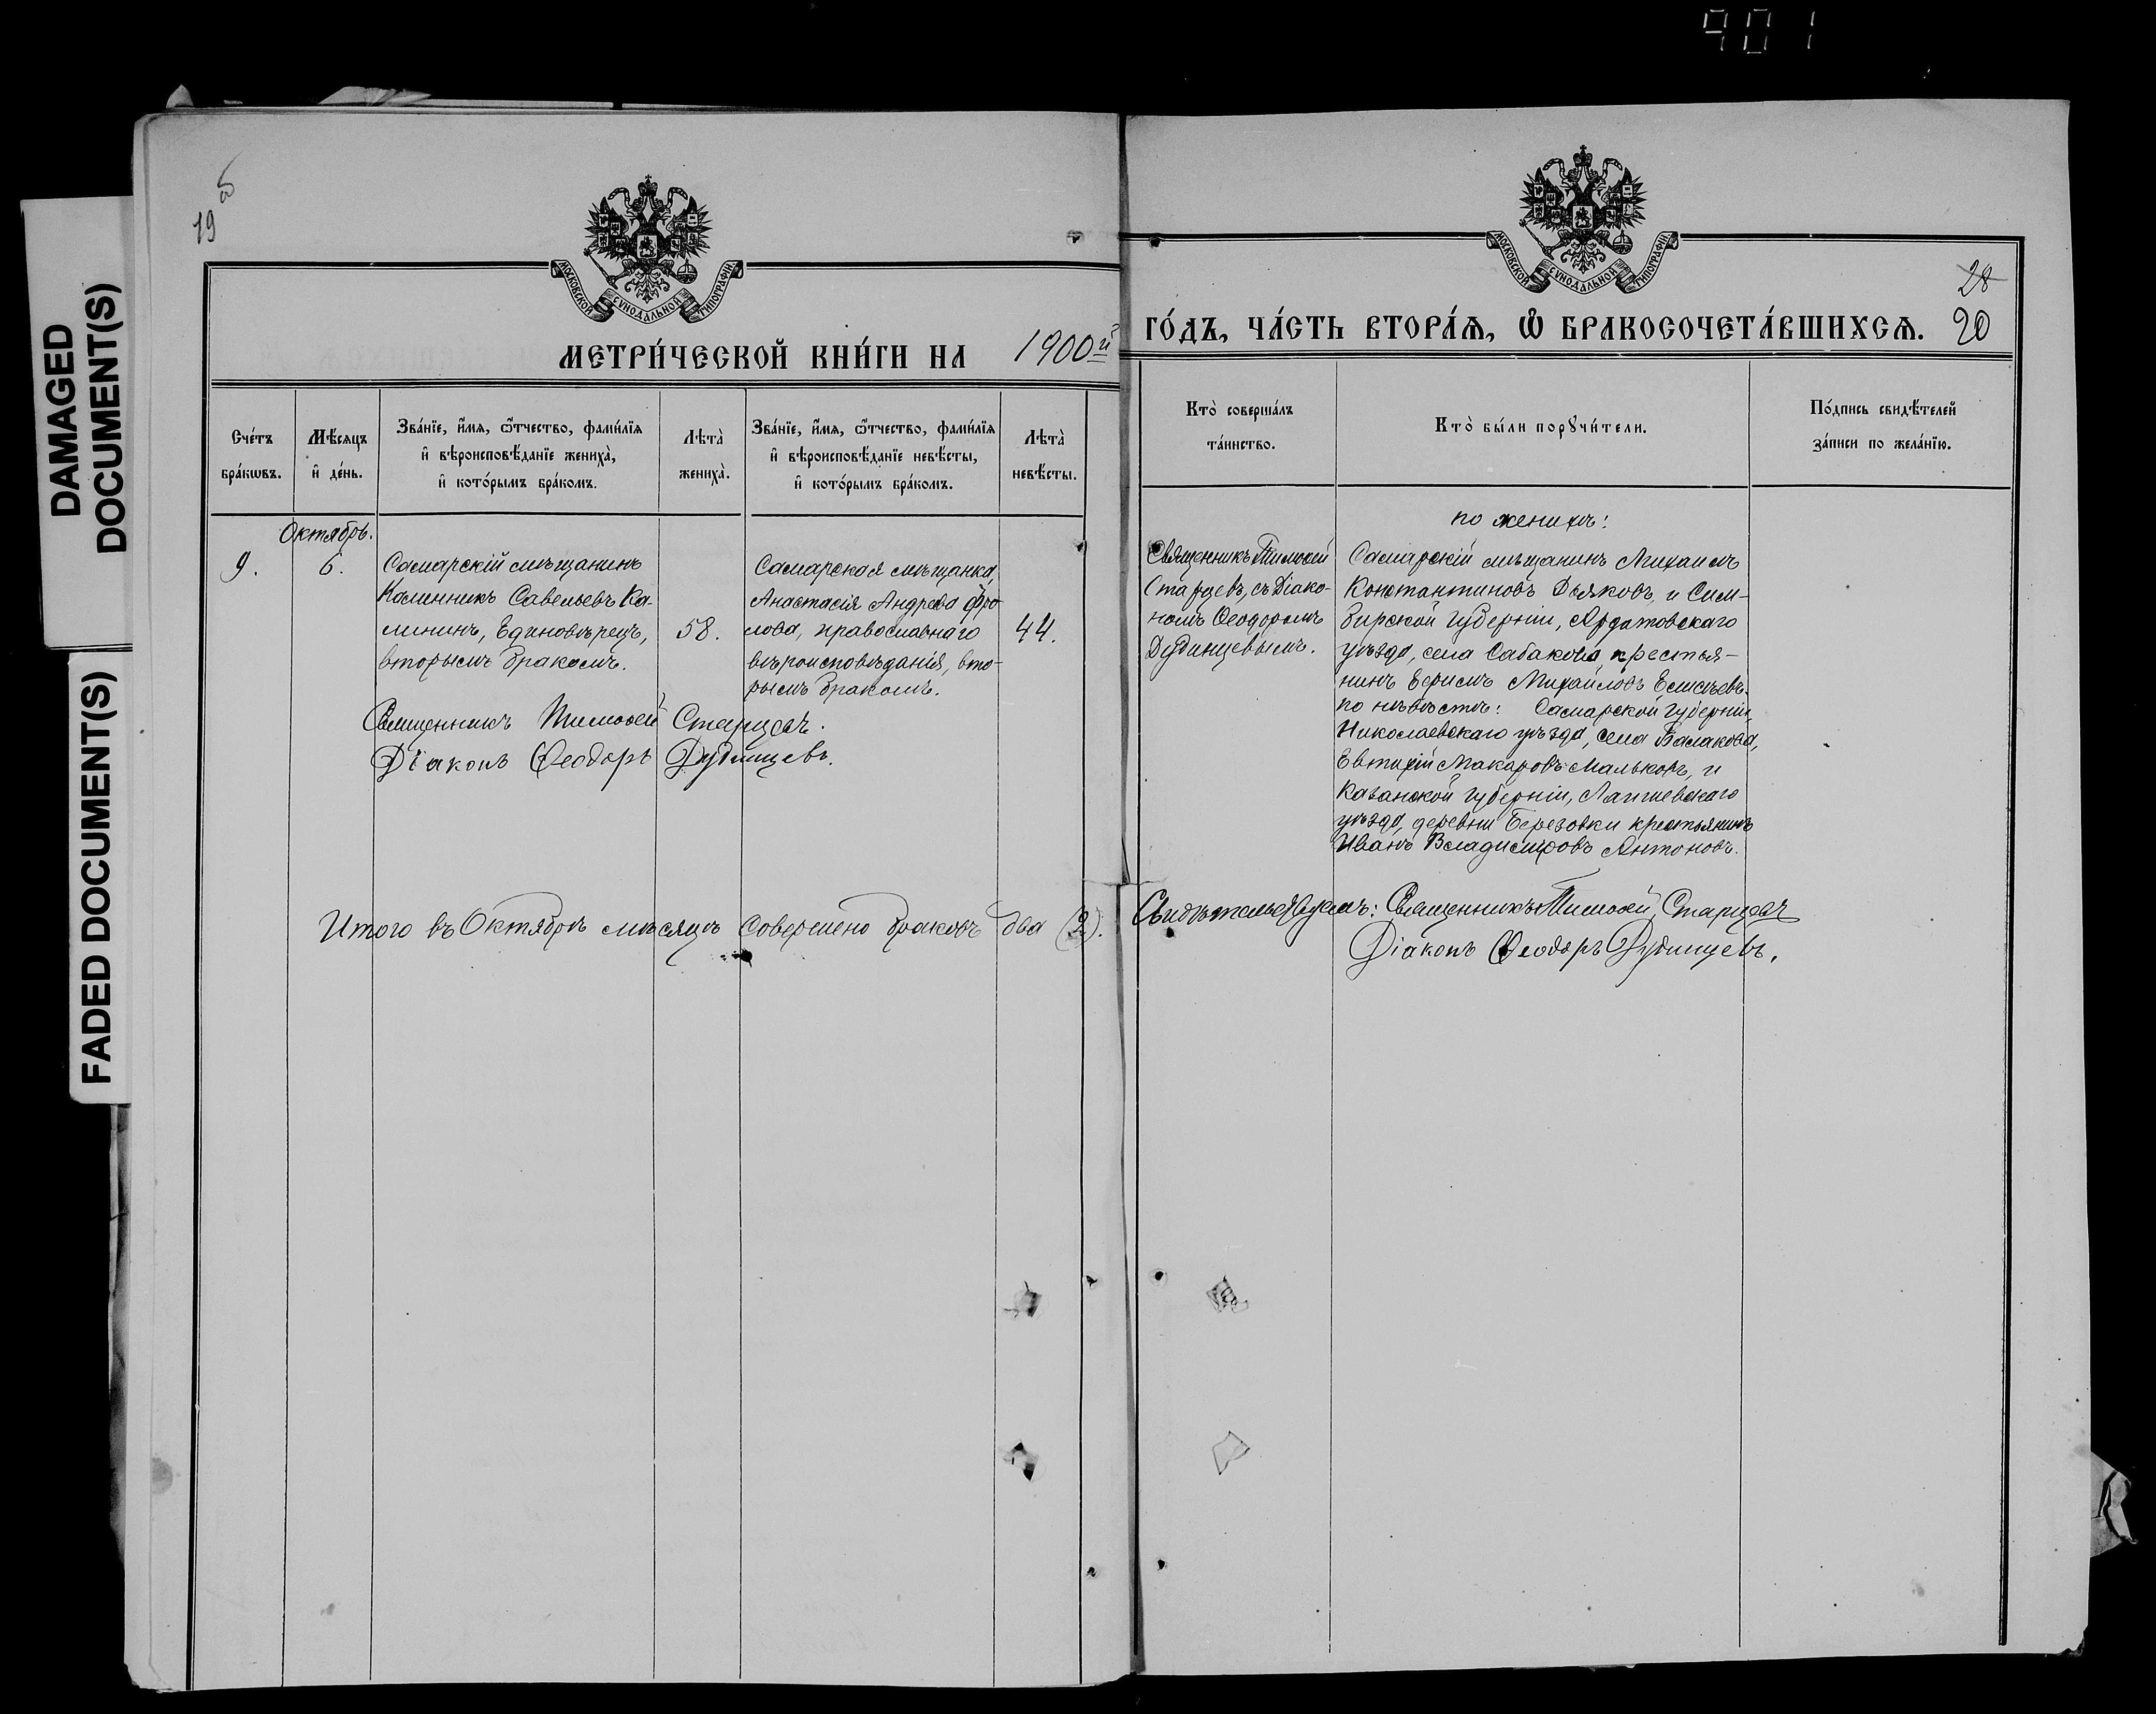 901
DAMAGED
DOCUMENT(S)
FADED DOCUMENT(S)
19
МОСКОВСКОЙ СѴНОДАЛЬНОЙ ТИПОГРАФІИ
МЕТРИ́ЧЕСКОЙ КНИ́ГИ НА 1900й
Сче́тъ
бра́кωвъ.
Мѣ́сяцъ
и҆ де́нь.
Зва́нїе, и҆́мя, ѻ҆́тчество, фами́лїя
и҆ вѣроисповѣ́данїе жениха̀,
и҆ кото́рымъ бра́комъ.
Лѣта̀
жениха̀.
Зва́нїе, и҆́мя, ѻ҆́тчество, фами́лїя
и҆ вѣроисповѣ́данїе невѣ́сты,
и҆ кото́рымъ бра́комъ.
Лѣта̀
невѣ́сты.
Октябрь.
9.
6.
Самарскій мѣщанинъ
Калинникъ Савельевъ Ка-
лининъ, Единовѣрецъ,
вторымъ бракомъ.
58.
Самарская мѣщанка,
Анастасія Андреева Фро
лова, православнаго
вѣроисповѣданія, вто-
рымъ бракомъ.
44.
Священникъ Тимоѳей Старцевъ.
Діаконъ Ѳеодоръ Дудинцевъ.
Итого въ Октябрѣ мѣсяцѣ совершено браковъ два (2).
МОСКОВСКОЙ СѴНОДАЛЬНОЙ ТИПОГРАФІИ
28
ГО́ДЪ, ЧА́СТЬ ВТОРА́Я, Ѽ БРАКОСОЧЕТА́ВШИХСЯ. 20
Кто̀ соверша́лъ
та́инство.
Кто̀ бы́ли порꙋчи́тели.
По́дпись свидѣ́телей
за́писи по жела́нїю.
по женихѣ:
Священникъ Тимоѳей
Старцевъ, съ Діако-
номъ Ѳеодоромъ
Дудинцевымъ.
Самарскій мѣщанинъ Михаилъ
Константиновъ Дьяковъ, и Сим-
бирской губерніи, Ардатовскаго
уѣзда, села Сабакова, крестья-
нинъ Ефимъ Михайловъ Елисѣевъ.
по невѣстѣ: Самарской губерніи,
Николаевскаго уѣзда, села Балакова,
Евтихій Макаровъ Мальковъ, и
Казанской губерніи, Лаишевскаго
уѣзда, деревни Березовки крестьянинъ
Иванъ Владиміровъ Антоновъ.
Свидѣтельствуемъ: Священникъ Тимоѳей Старцевъ
Діаконъ Ѳеодоръ Дудинцевъ.